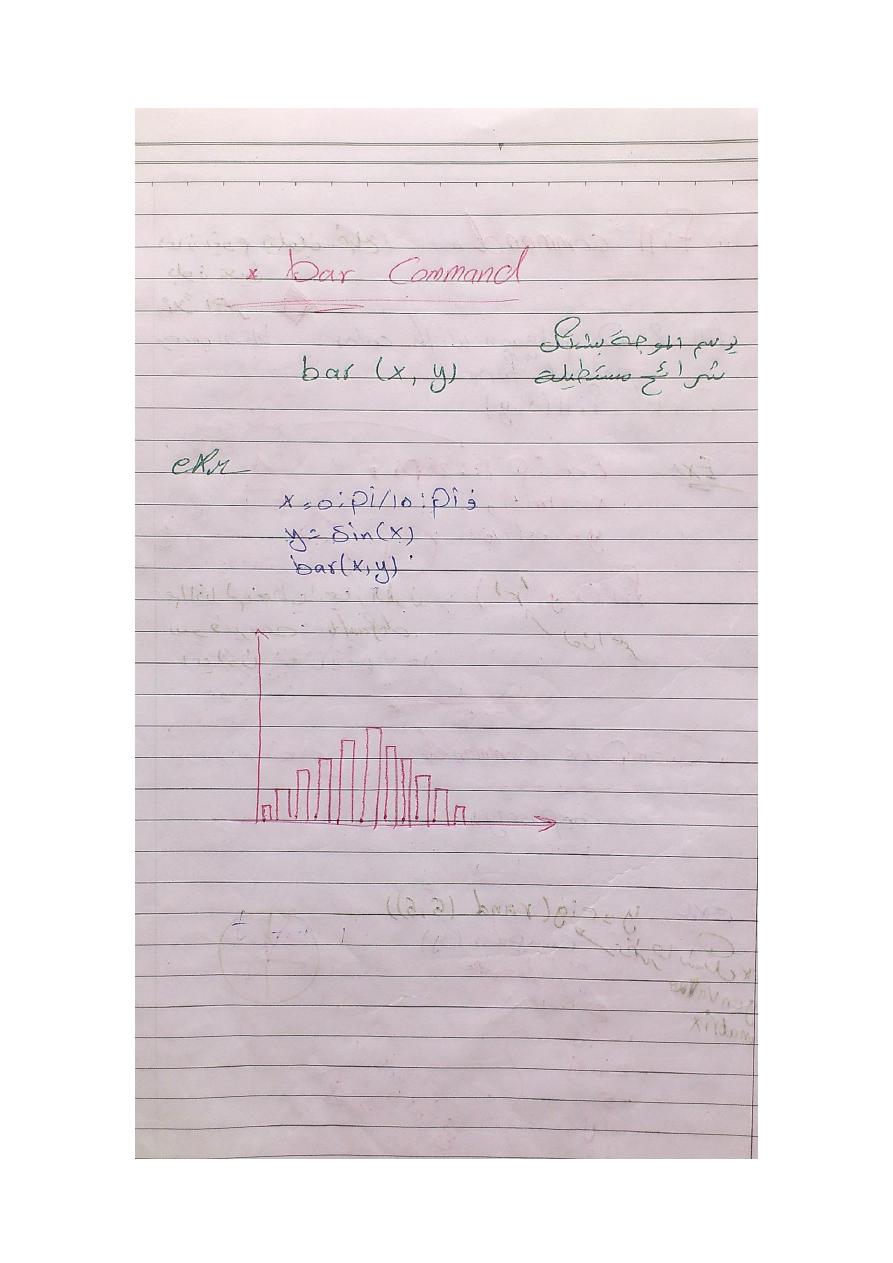 * bar Command
يرسم الموجة بشكل
bar (x, y) شرائح مستطيلة
x=0:pi/10:pi;
y= Sin(x)
bar(x,y)